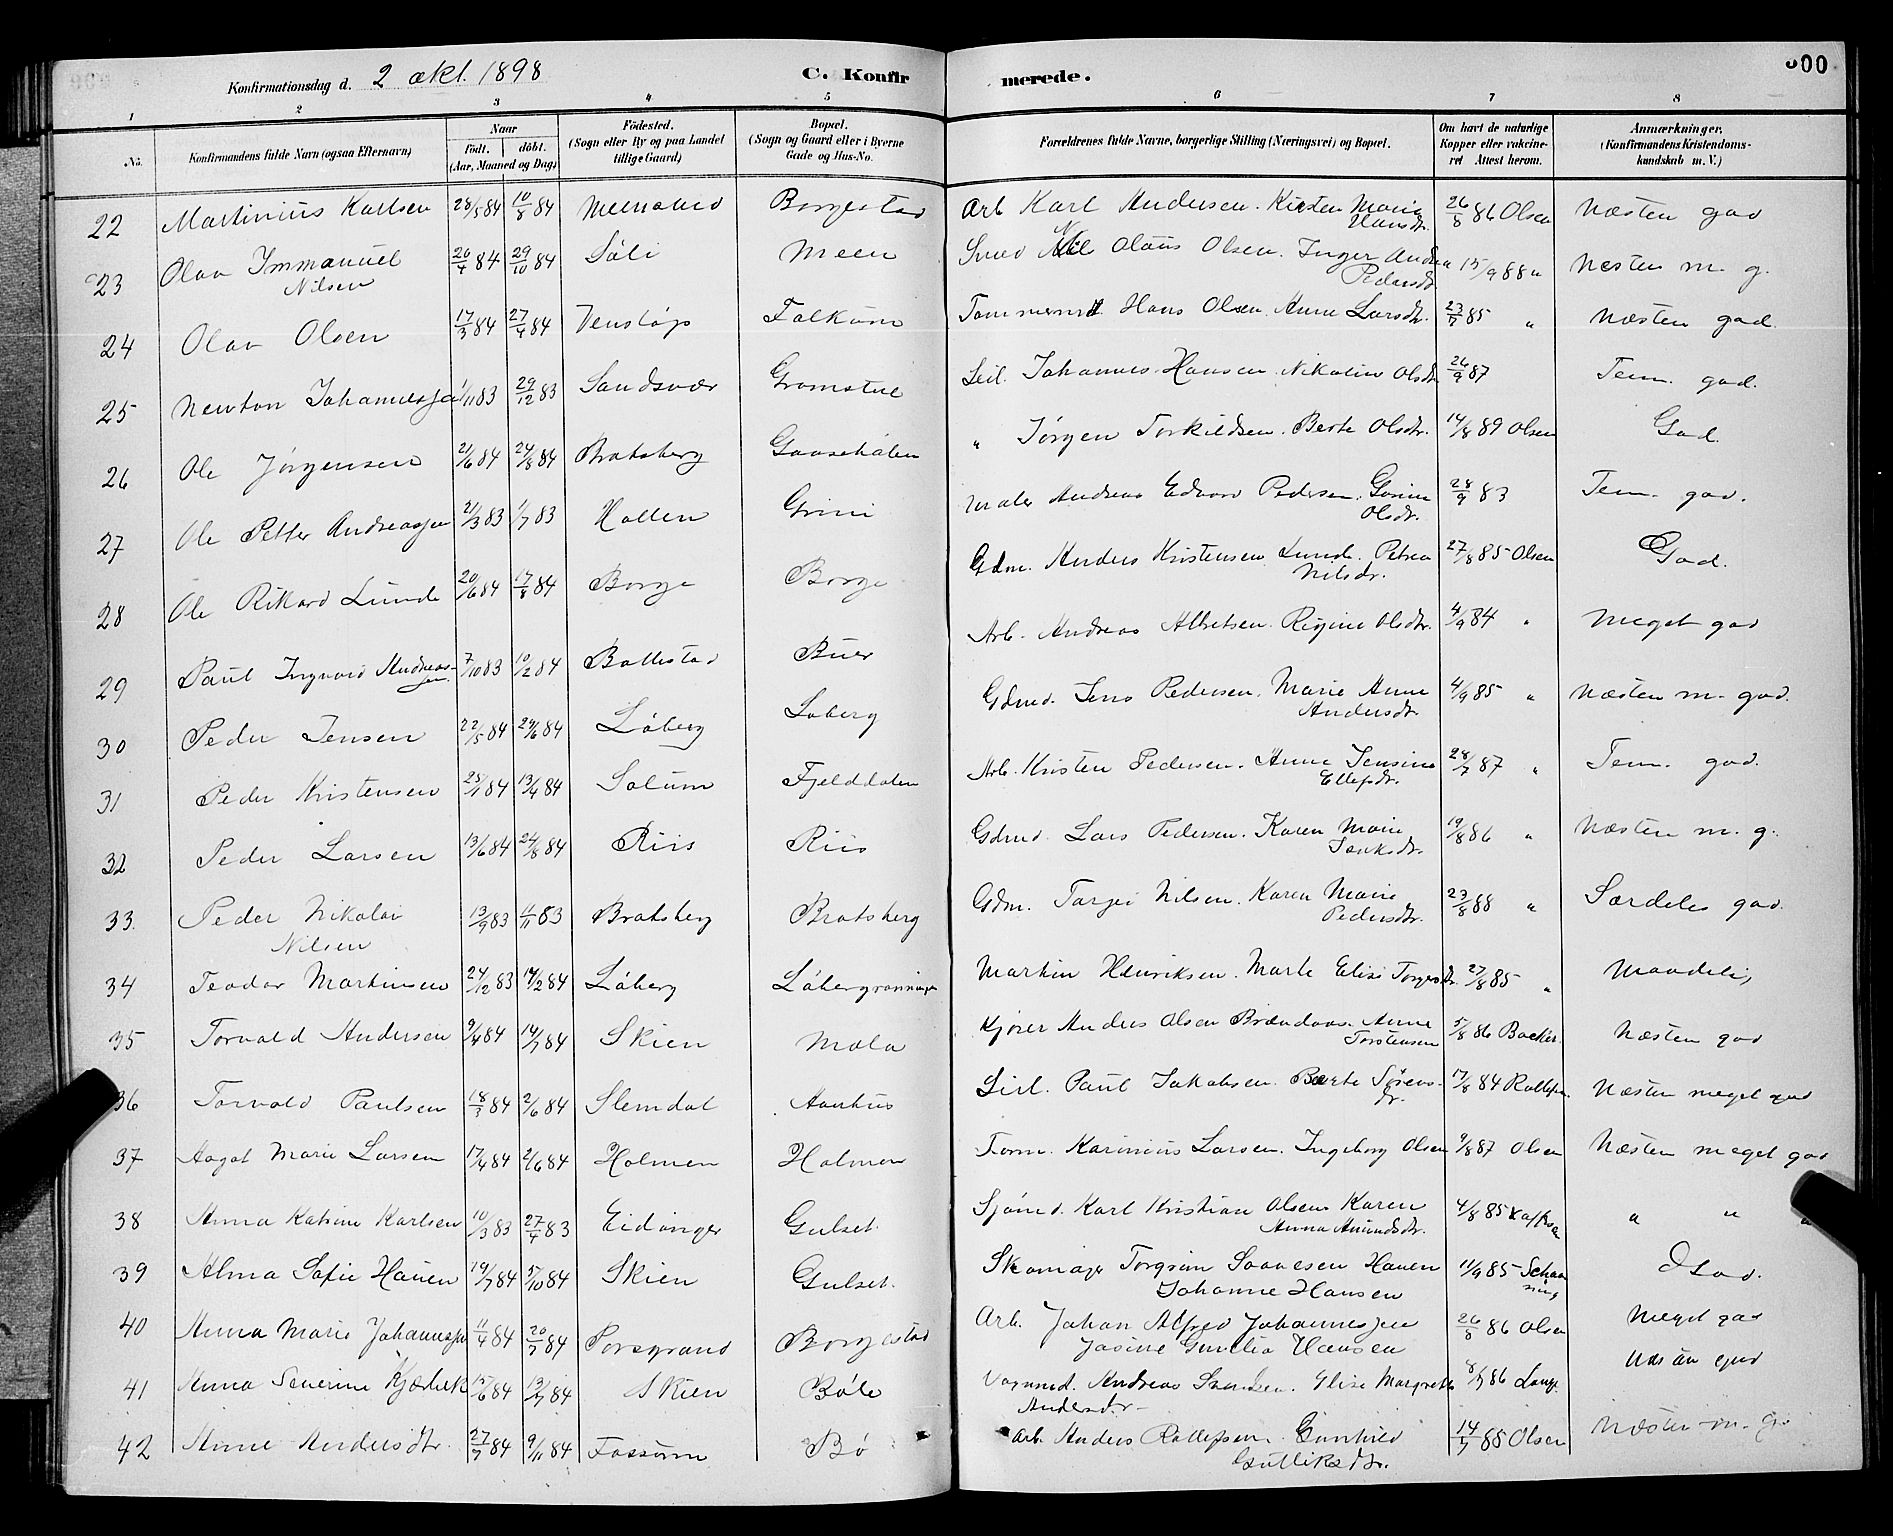 Konfirmationsdag d. 2 okt. 1898 C. Konfirmerede. 300
1 2 3 4 5 6 7 8
No. Konfirmandens fulde Navn (ogsaa Efternavn) Naar Födt. döbt. (Aar, Maaned og Dag) Födested. (Sogn eller By og paa Landet tillige Gaard) Bopæl. (Sogn og Gaard eller i Byerne Gade og Hus-No. Forældrenes fulde Navne, borgerlige Stilling (Næringsvei) og Bopæl. Om havt de naturlige Kopper eller vakcineret Attest herom. Anmærkninger. (Konfirmandens Kristendomskundskab m. V.)
22 Martinius Karlsen 28/5 84 10/8 84 Borgestad Arb Karl Andersen. Kirsten Marie Hansdtr. 26/8 86 Olsen Næsten god
23 Olav Immanuel Nilsen 26/4 84 29/10 84 Søli Meen Smed Olaus Olsen. Inger Andrea Pedersdtr 15/9 88 " Næsten m. g.
24 Olav Olsen 17/3 84 27/4 84 Venstøp Falkum Tømmermd. Hans Olsen. Anne Larsdtr. 23/7 85 " Næsten god.
25 Newton Johannessen 1/11 83 29/12 83 Sandsvær Gromstul Seil. Johannes Hansen. Nikoline Olsdtr 26/9 87 Tem. god.
26 Ole Jørgensen 21/6 84 24/8 84 Bratsberg Gaasehølen " Jørgen Torkildsen. Berte Olsdtr. 14/8 89 Olsen God.
27 Ole Petter Andreassen 21/3 83 1/7 83 Hollen Grini Maler Andreas Edvard Pedersen. Olsdtr. 28/9 83 Tem. god.
28 Ole Rikard Lunde 20/6 84 17/8 84 Borge Borge Gdm. Anders Kristensen Lunde. Petrea Nilsdr. 27/8 85 Olsen God.
29 Paul Ingvard Andreassen 7/10 83 10/2 84 Ballestad Buer Arb. Andreas Albretsen. Regine Olsdtr. 4/9 84 " Meget god
30 Peder Jensen 22/5 84 29/6 84 Løberg Løberg Gdmd. Jens Pedersen. Marie Anne Andersdtr. 4/9 85 " Næsten m. god.
31 Peder Kristensen 25/1 84 13/4 84 Solum Fjelddalen Arb. Kristen Pedersen. Anne Jensine Ellefsdr. 28/7 87 " Tem. god.
32 Peder Larsen 13/6 84 24/8 84 Riis Riis Gdmd. Lars Pedersen. Karen Marie 19/8 86 " Næsten m. g.
33. Peder Nikolai Nilsen 13/9 83 11/11 83 Bratsberg Bratsberg Gdm. Targei Nilsen. Karen Marie Pedersdtr. 23/8 88 " Særdeles god.
34 Teodor Martinsen 24/12 83 14/2 84 Løberg Løbergrønningen Martin Henriksen. Marte Elise 27/8 85 " Maadelig
35 Torvald Andersen 9/4 84 14/7 84 Skien Mæla Kjører Anders Olsen Brændaas. Anne Torstensen 5/8 86 Backer. Næsten god
36 Torvald Paulsen 18/3 84 2/6 84 Slemdal Aarhus Seil. Paul Jakobsen. Berte Sørensdr. 17/8 84 Rollefsen. Næsten meget god
37 Aagot Marie Larsen 17/4 84 2/6 84 Holmen Holmen Tøm. Karinius Larsen. Ingeborg Olsen 9/8 87 Olsen Næsten meget god
38 Anna Katrine Karlsen 10/3 83 27/4 83 Eidanger Gulset. Sjømd. Karl Kristian Olsen Karen Anna Amundsdtr. 4/8 85 " " "
39 Alma Sofie Hauen 19/7 84 5/10 84 Skien Gulset. Skomager Torgrim Hauen Johanne Hansen 11/9 85 Schanning God.
40 Anna Marie Johannessen 11/4 84 20/7 84 Porsgrund Borgestad Arb. Johan Alfred Johannessen Josine Gurelia Hansen 26/8 86 Olsen Meget god
41 Anna Severine Kjærbek 15/6 84 13/7 84 Skien Bøle Vognmd. Andreas Svendsen. Elise Margrethe Andersdtr. 8/7 86 Lange Næsten god
42 Anne Andersdtr. 27/7 84 9/11 84 Fossum Bø Arb. Anders Rollefsen. Gunhild Gulliksdtr. 14/7 85 Olsen Næsten m. go